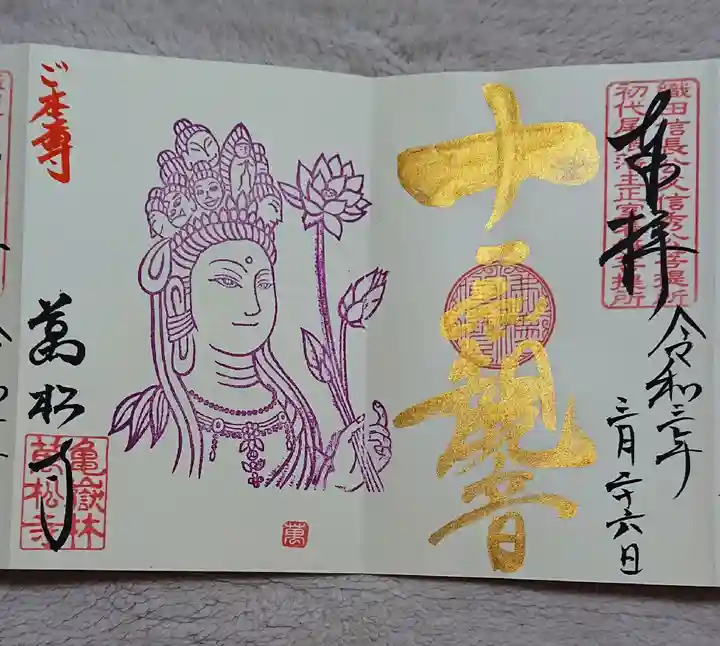 織田信長公父信秀公菩提所
初代尾張藩主正室菩提所
奉拝
令和三年
三月二十六日
十一面観音
ご本尊
萬松寺
亀嶽林
萬松寺
萬